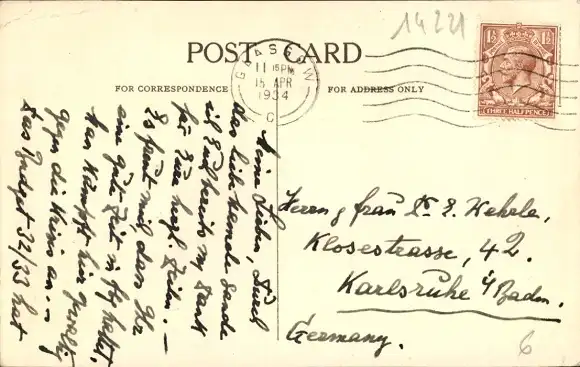 14221
POST CARD
FOR CORRESPONDENCE
FOR ADDRESS ONLY
GLASGOW
11 15 PM
15 APR
1934
C
1½ 1½
THREE HALFPENCE
Meine Lieben, Durch
sende
ich Euch bereits m. Dank
für Eure herzl. Zeilen. —
Es freut mich, dass Ihr
eine gute Zeit in hattet.
Man kämpft hier
gegen die an. —
Das Budget 32/33 hat
Herrn & Frau Dr. E. Wehrle,
Klosestrasse, 42.
Karlsruhe i/Baden.
Germany.
6